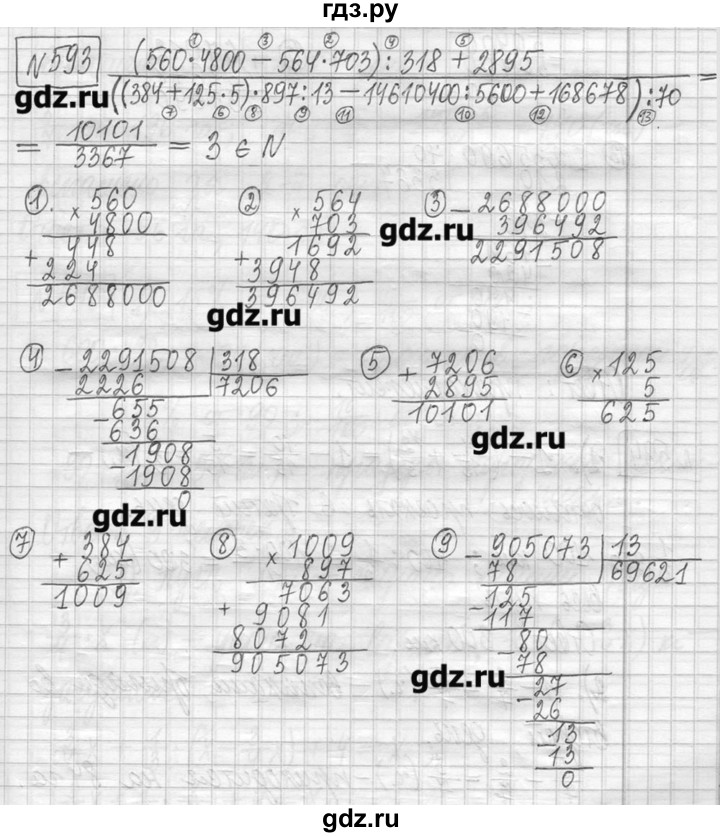 гдз.ру
№593 (560·4800 − 564·703) : 318 + 2895
((384 + 125·5)·897 : 13 − 14610400 : 5600 + 168678) : 70 =
gdz.ru
= 10101 / 3367 = 3 ∈ N
① 560
× 4800
448
+ 224
2688000
② 564
× 703
1692
+ 3948
396492
③ − 2688000
396492
2291508
gdz.ru
gdz.ru
④ − 2291508 | 318
2226 7206
− 655
636
− 1908
− 1908
0
⑤ + 7206
2895
10101
⑥ × 125
5
625
gdz.ru
gdz.ru
⑦ + 384
625
1009
⑧ × 1009
897
7063
+ 9081
8072
905073
⑨ − 905073 | 13
78 69621
− 125
117
− 80
78
− 27
26
− 13
13
0
gdz.ru
гдз.ру